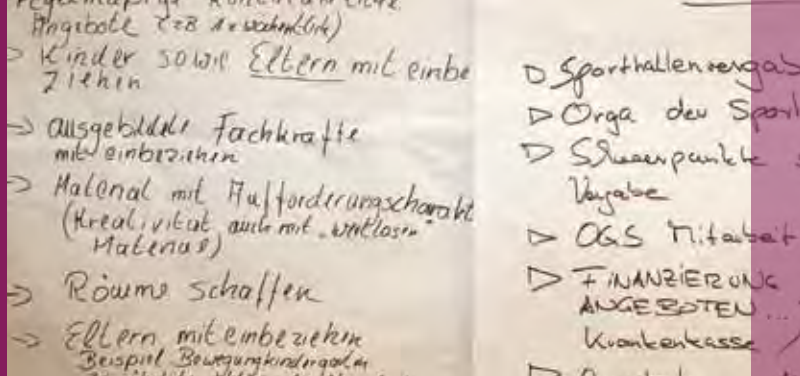 Angebote (z.B 1x wöchentlich)
> Kinder sowie Eltern mit einbe
ziehen
-> ausgebildete Fachkräfte
mit einbeziehen
-> Material mit Aufforderungscharakt
(Kreativität auch mit "wertlosen"
Material)
-> Räume schaffen
-> Eltern miteinbeziehen
Beispiel Bewegungskindergarten
▷ Sporthallenvergab
▷ Orga der Sport
▷
Vorgabe
▷ OGS Mitarbeit
▷ FINANZIERUNG
ANGEBOTEN...
Krankenkasse